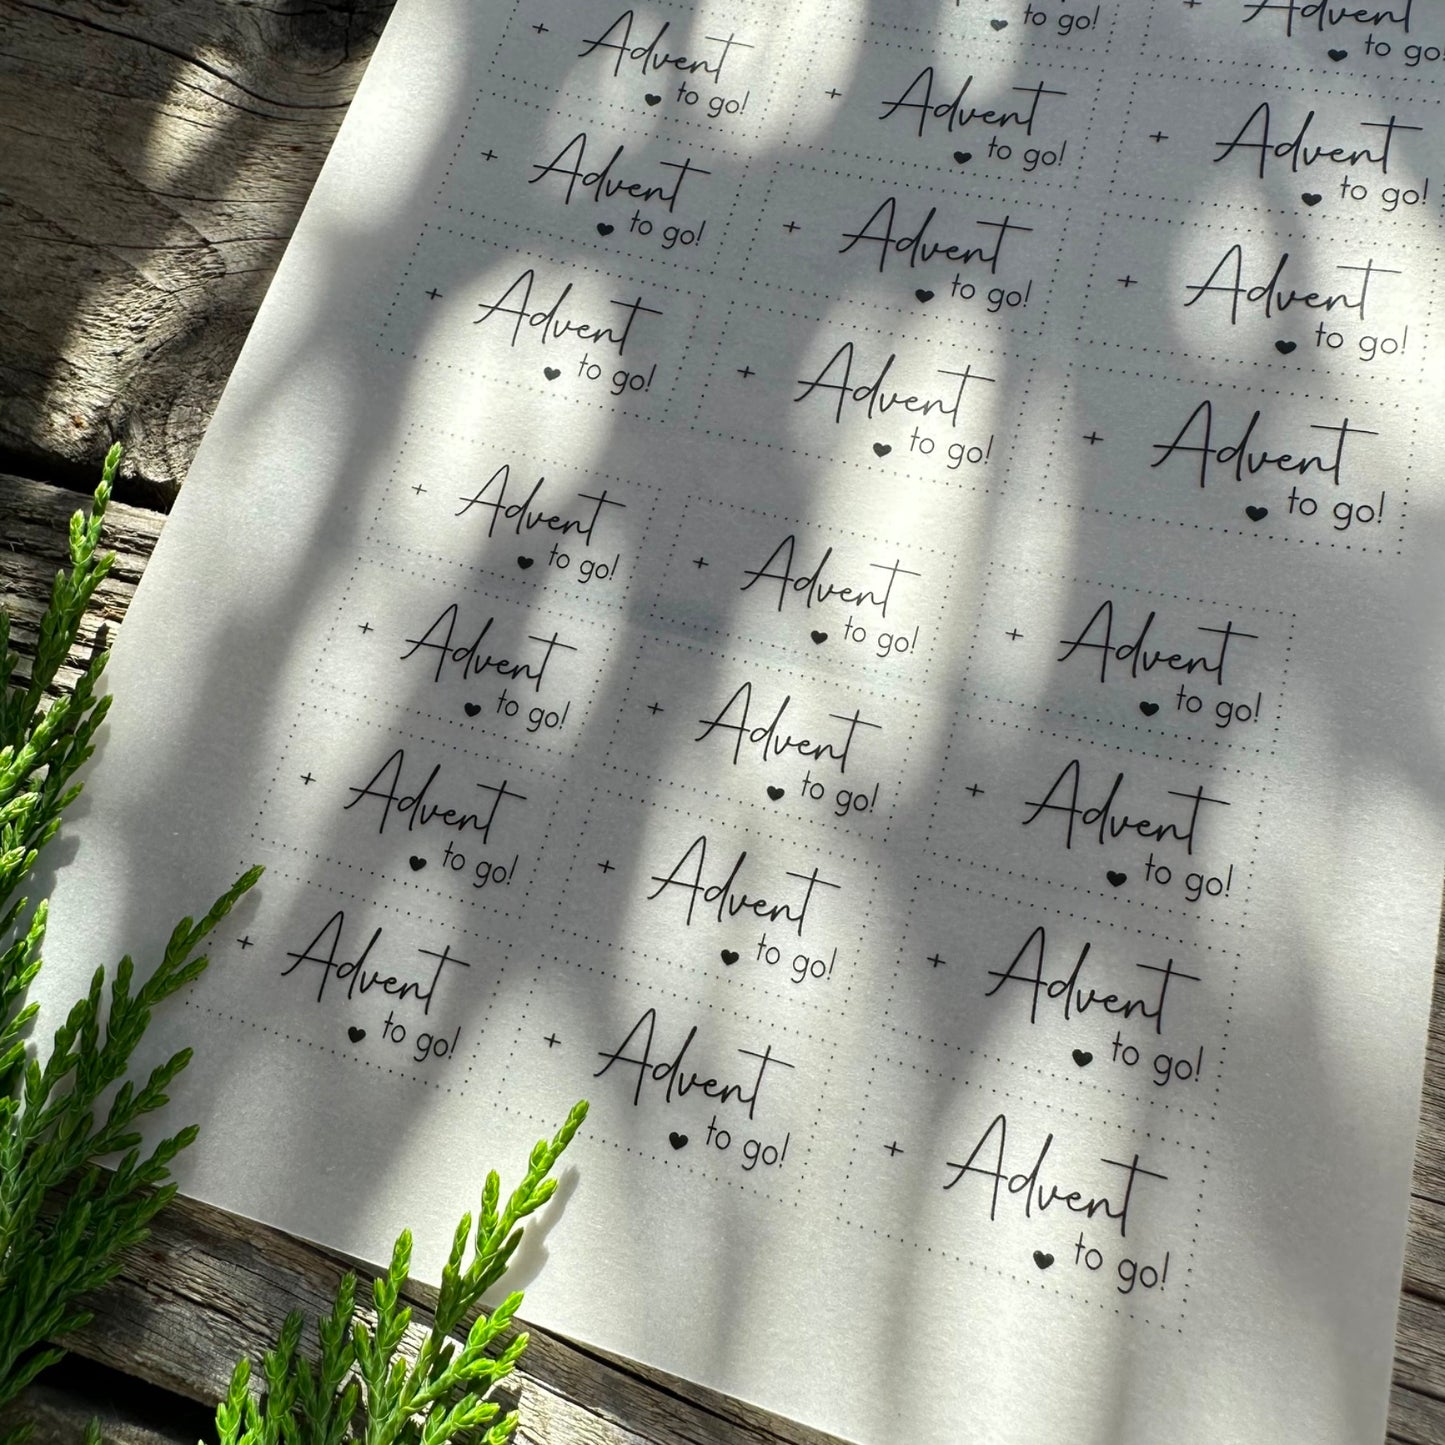 ♥ to go!
+ Advent
♥ to go!
+ Advent
♥ to go!
+ Advent
♥ to go!
+ Advent
♥ to go!
+ Advent
♥ to go!
+ Advent
♥ to go!
+ Advent
♥ to go!
+ Advent
♥ to go!
+ Advent
♥ to go!
+ Advent
♥ to go!
+ Advent
♥ to go!
+ Advent
♥ to go!
+ Advent
♥ to go!
+ Advent
♥ to go!
+ Advent
♥ to go!
+ Advent
♥ to go!
+ Advent
♥ to go!
+ Advent
♥ to go!
+ Advent
♥ to go!
+ Advent
♥ to go!
+ Advent
♥ to go!
+ Advent
♥ to go!